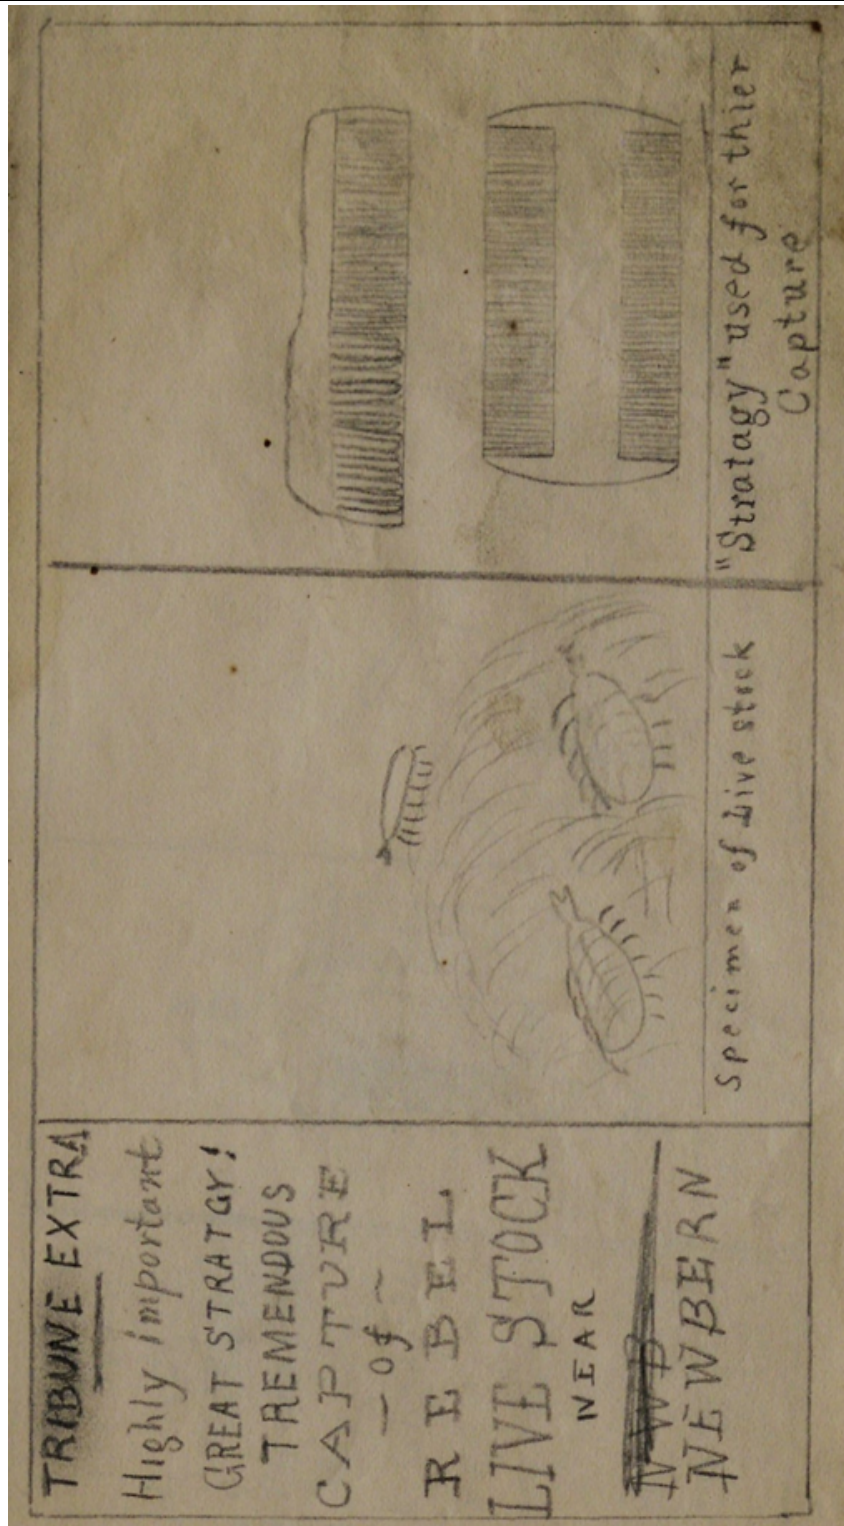 TRIBUNE EXTRA
Highly important
GREAT STRATGY!
TREMENDOUS
CAPTURE
– of ~
REBEL
LIVE STOCK
NEAR
NWB
NEWBERN
specimen of Live stock
"Stratagy" used for thier
Capture